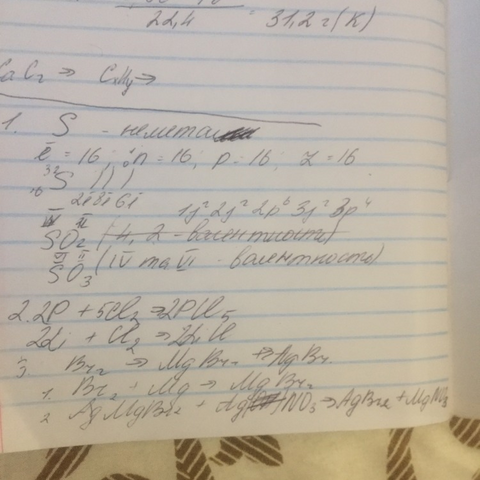 22,4 = 31,2 г (K)
CaC₂ ⇒ CxHy ⇒
1. S - немета
ē = 16; n = 16; p = 16; Z = 16
³²₁₆S ) ) )
2ē 8ē 6ē
1s² 2s² 2p⁶ 3s² 3p⁴
IV II
SO₂ (4, 2 - валентность)
VI II (IV та VI валентность)
SO₃
2. 2P + 5Cl₂ ⇒ 2PCl₅
2Li + Cl₂ ⇒ 2LiCl
3. Br₂ ⇒ MgBr₂ ⇒ AgBr
1. Br₂ + Mg ⇒ MgBr₂
2. AgMgBr₂ + Ag NO₃ ⇒ AgBr₂ + MgNO₃